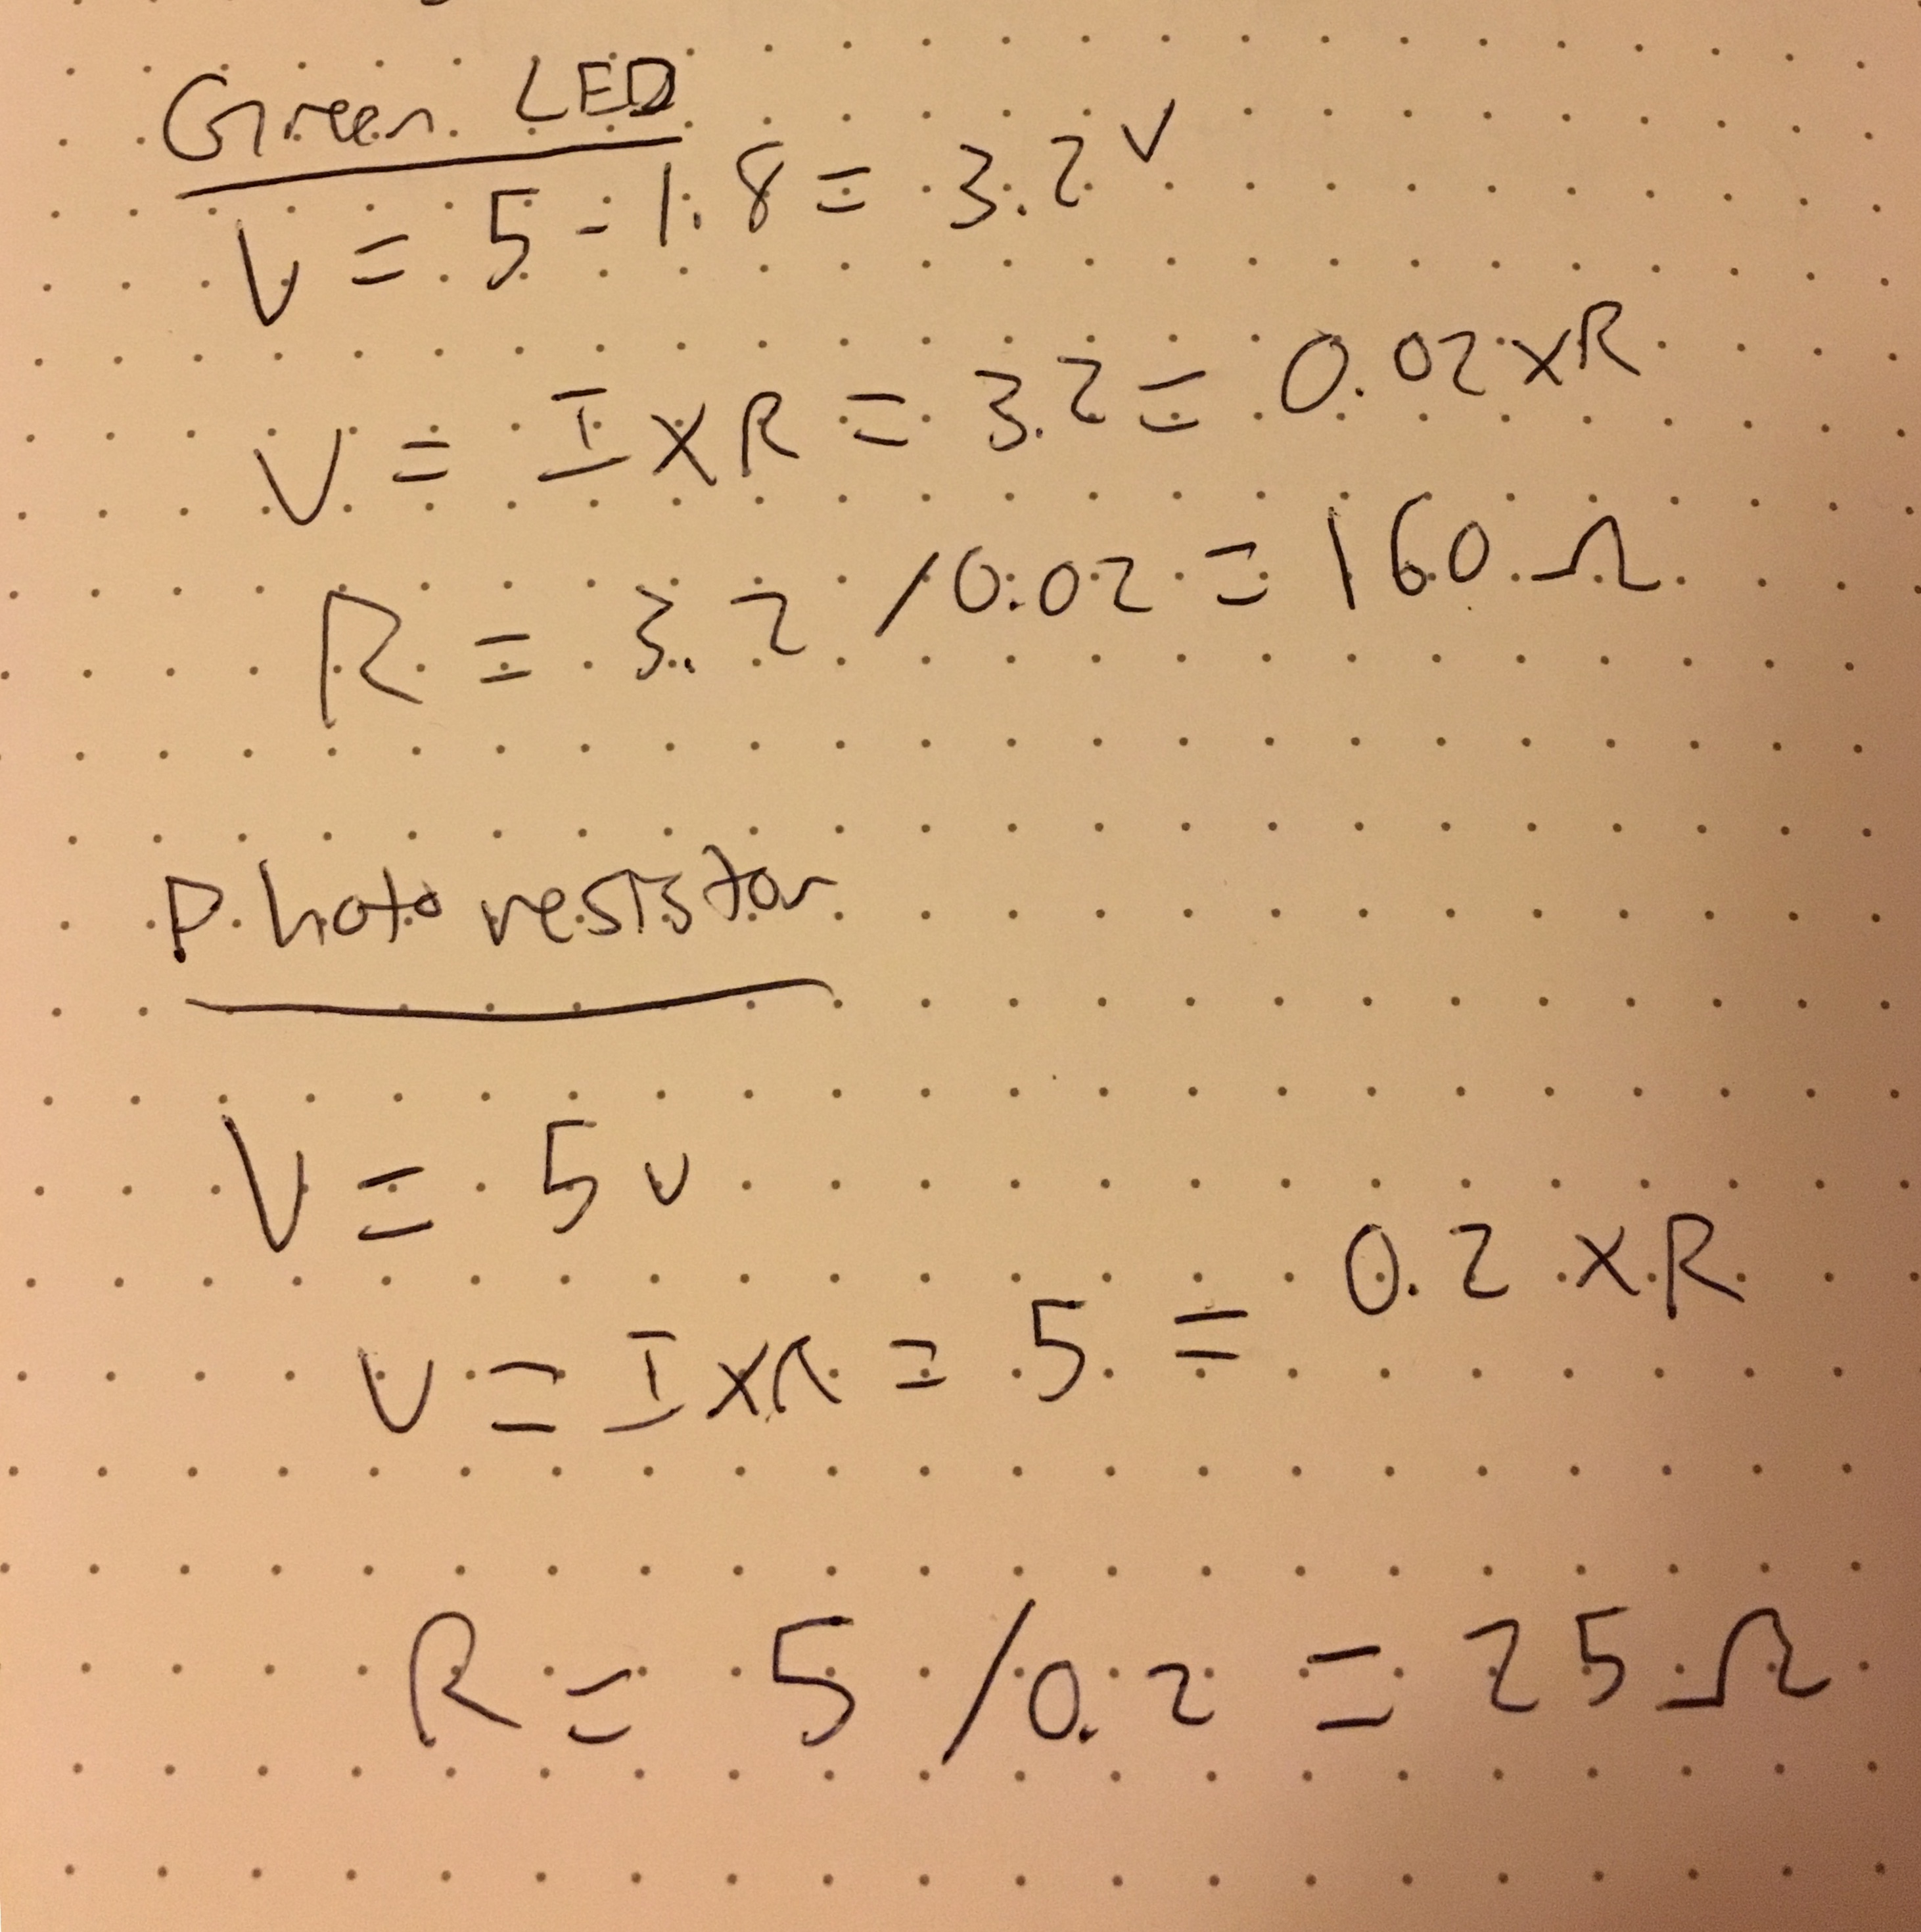 Green LED
V = 5 - 1.8 = 3.2 V
V = I x R = 3.2 = 0.02 x R
R = 3.2 / 0.02 = 160 Ω
Photo resistor
V = 5 v
V = I x R = 5 = 0.2 x R
R = 5 / 0.2 = 25 Ω